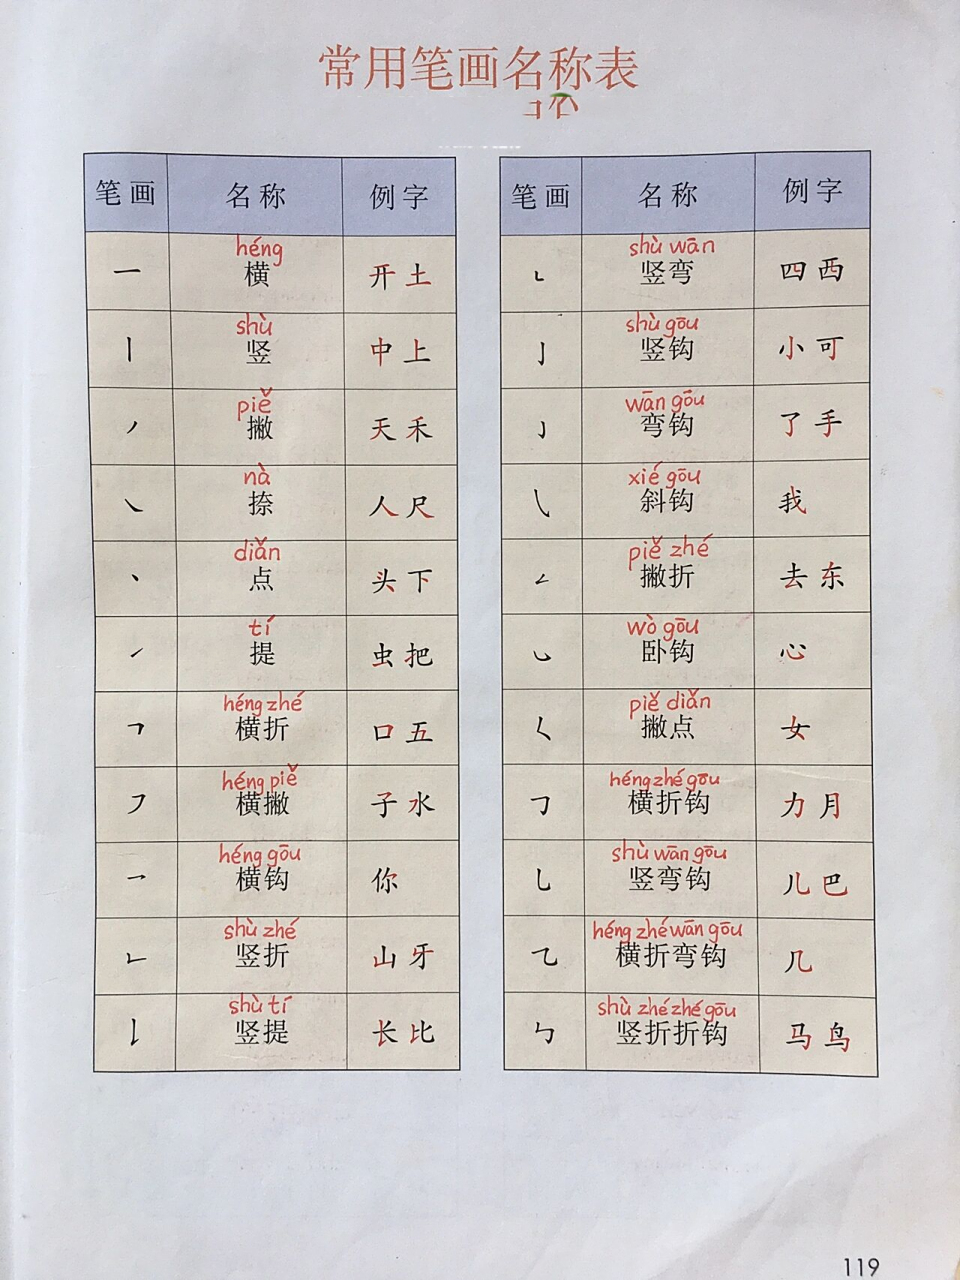 常用笔画名称表
笔画 名称 例字
héng
一 横 开 土
shù
丨 竖 中 上
piě
丿 撇 天 禾
nà
㇏ 捺 人 尺
diǎn
丶 点 头 下
tí
㇀ 提 虫 把
héng zhé
𠃍 横折 口 五
héng piě
㇇ 横撇 子 水
héng gōu
乛 横钩 你
shù zhé
𠃊 竖折 山 牙
shù tí
𠄌 竖提 长 比
笔画 名称 例字
shù wān
㇄ 竖弯 四 西
shù gōu
亅 竖钩 小 可
wān gōu
㇁ 弯钩 了 手
xié gōu
㇂ 斜钩 我
piě zhé
𠃋 撇折 去 东
wò gōu
㇃ 卧钩 心
piě diǎn
𡿨 撇点 女
héng zhé gōu
𠃌 横折钩 力 月
shù wān gōu
乚 竖弯钩 儿 巴
héng zhé wān gōu
㇈ 横折弯钩 几
shù zhé zhé gōu
㇉ 竖折折钩 马 鸟
119